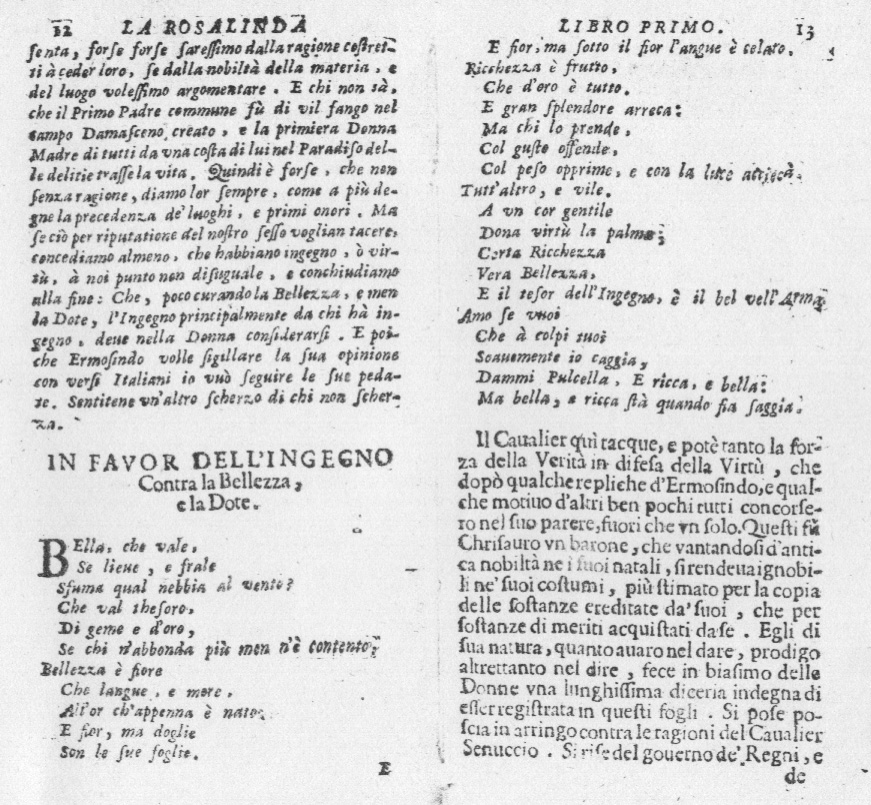 12 LA ROSALINDA
senta, forse forse saressimo dalla ragione costret-
ti à ceder loro, se dalla nobiltà della materia, e
del luogo volessimo argomentare. E chi non sà,
che il Primo Padre commune fù di vil fango nel
campo Damasceno creato, e la primiera Donna
Madre di tutti da vna costa di lui nel Paradiso del-
le delitie trasse la vita. Quindi è forse, che non
senza ragione, diamo lor sempre, come a più de-
gne la precedenza de' luoghi, e primi onori. Ma
se ciò per riputatione del nostro sesso voglian tacere,
concediamo almeno, che habbiano ingegno, ò vir-
tù, à noi punto non disuguale, e conchiudiamo
alla fine: Che, poco curando la Bellezza, e men
la Dote, l'Ingegno principalmente da chi hà in-
gegno, deue nella Donna considerarsi. E poi-
che Ermosindo volle sigillare la sua opinione
con versi Italiani io vuò seguire le sue peda-
te. Sentitene vn'altro scherzo di chi non scher-
za.
IN FAVOR DELL'INGEGNO
Contra la Bellezza,
e la Dote.
BElla, che vale,
Se lieue, e frale
Sfuma qual nebbia al vento?
Che val thesoro,
Di geme e d'oro,
Se chi n'abbonda più men n'è contento?
Bellezza è fiore
Che langue, e more,
All'or ch'appenna è nato.
E fior, ma doglie
Son le sue foglie.
E
LIBRO PRIMO. 13
E fior, ma sotto il fior l'angue è celato.
Ricchezza è frutto,
Che d'oro è tutto.
E gran splendore arreca:
Ma chi lo prende,
Col gusto offende,
Col peso opprime, e con la luce accieca.
Tutt'altro, e vile.
A vn cor gentile
Dona virtù la palma;
Certa Ricchezza
Vera Bellezza,
E il tesor dell'Ingegno, è il bel dell'Alma
Amo se vuoi
Che à colpi tuoi
Soauemente io caggia,
Dammi Pulcella, E ricca, e bella:
Ma bella, e ricca stà quando fia saggia.
Il Caualier quì tacque, e potè tanto la for-
za della Verità in difesa della Virtù, che
dopò qualche repliche d'Ermosindo, e qual-
che motiuo d'altri ben pochi tutti concorse-
ro nel suo parere, fuori che vn solo. Questi fù
Chrisauro vn barone, che vantandosi d'anti-
ca nobiltà ne i suoi natali, si rendeua ignobi-
li ne' suoi costumi, più stimato per la copia
delle sostanze ereditate da' suoi, che per
sostanze di meriti acquistati da se. Egli di
sua natura, quanto auaro nel dare, prodigo
altrettanto nel dire, fece in biasimo delle
Donne vna lunghissima diceria indegna di
esser registrata in questi fogli. Si pose po-
scia in arringo contra le ragioni del Caualier
Senuccio. Si rise del gouerno de' Regni, e
de